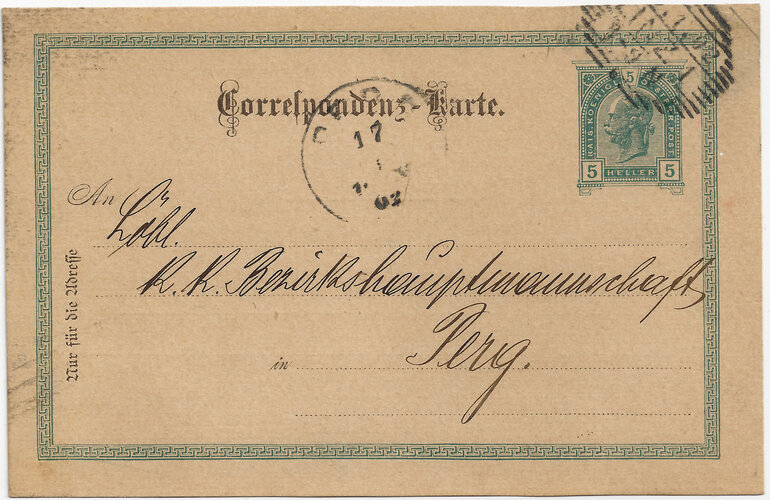 Correspondenz-Karte.
5
KAIS. KOENIGL.
ERR. POST
5 HELLER 5
17
An Löbl.
K. K. Bezirkshauptmannschaft
in Perg.
Nur für die Adresse